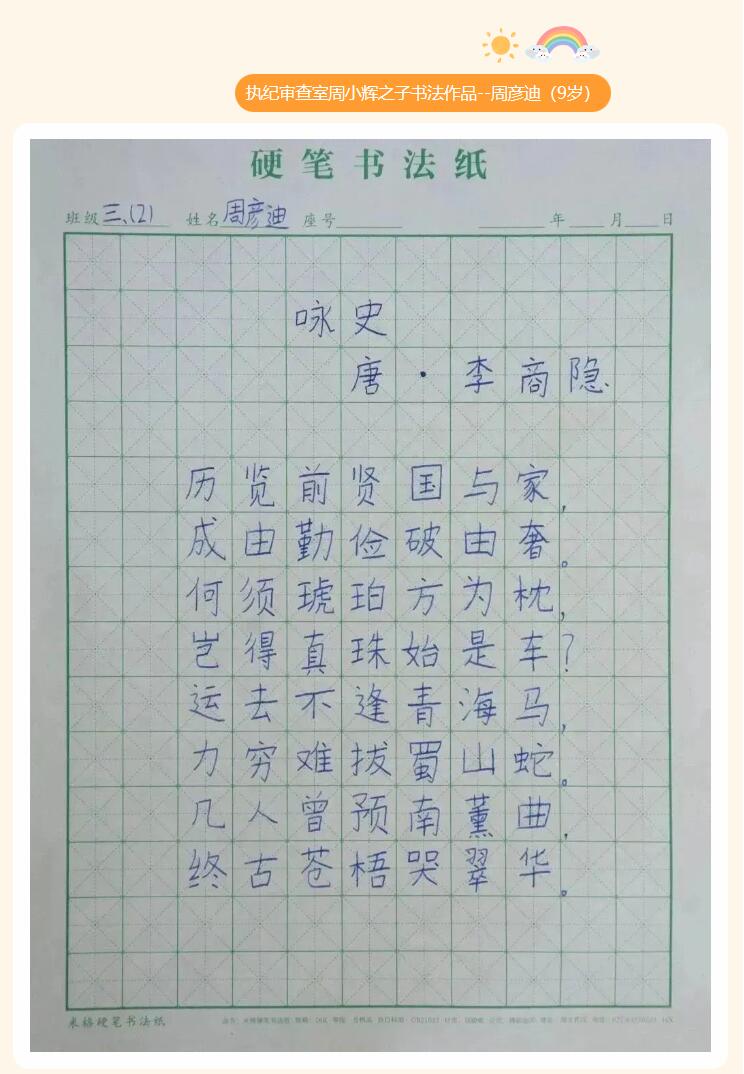 执纪审查室周小辉之子书法作品--周彦迪（9岁）
硬笔书法纸
班级 三、(2) 姓名 周彦迪 座号 年 月 日
咏史
唐·李商隐
历览前贤国与家，
成由勤俭破由奢。
何须琥珀方为枕，
岂得真珠始是车？
运去不逢青海马，
力穷难拔蜀山蛇。
几人曾预南薰曲，
终古苍梧哭翠华。
米格硬笔书法纸